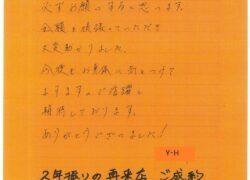 必ずお願いすると思います。
金額も頑張っていただき
大変助かりました。
今後もお身体に気をつけて
ますますのご活躍を
期待しております。
ありがとうございました!
Y-H
2年振りの再来店 ご成約